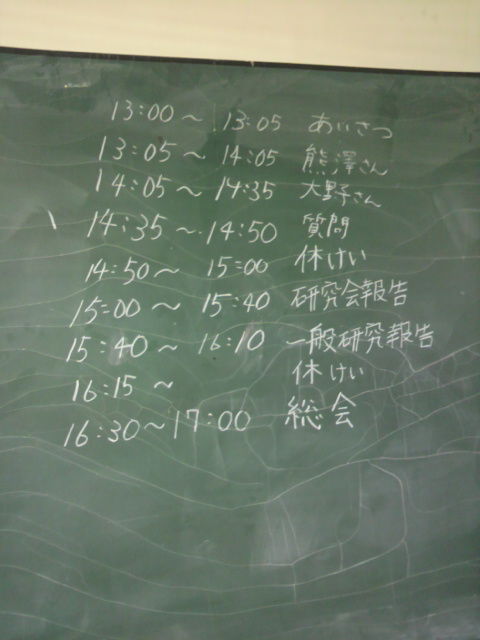 13:00～13:05 あいさつ
13:05～14:05 熊澤さん
14:05～14:35 大野さん
14:35～14:50 質問
14:50～15:00 休けい
15:00～15:40 研究会報告
15:40～16:10 一般研究報告
16:15～ 休けい
16:30～17:00 総会